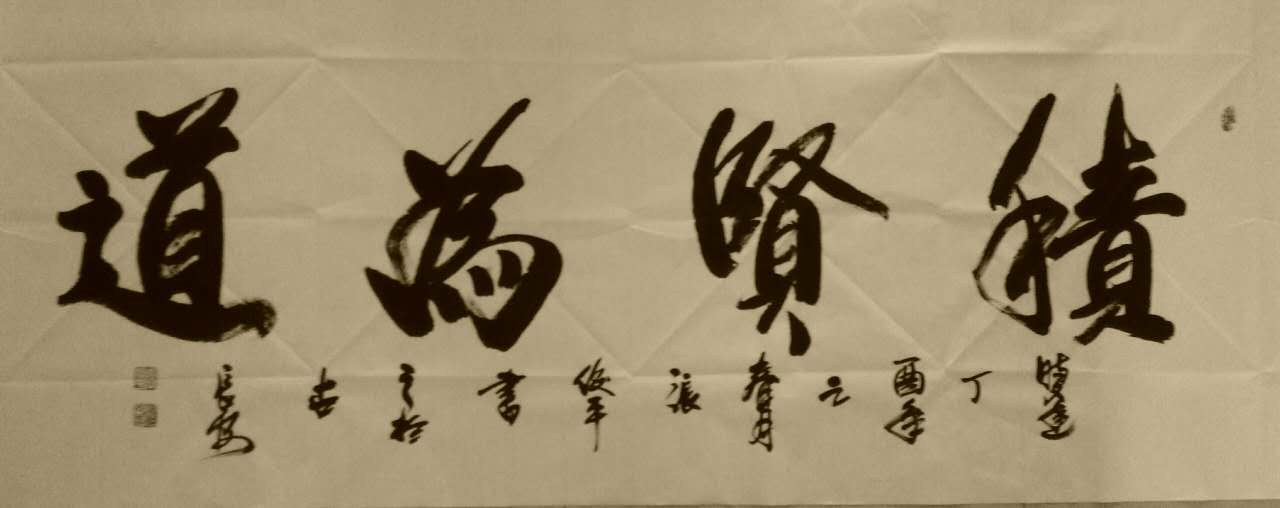 積賢為道
時逢丁酉年之春月張俊平書之於古長安